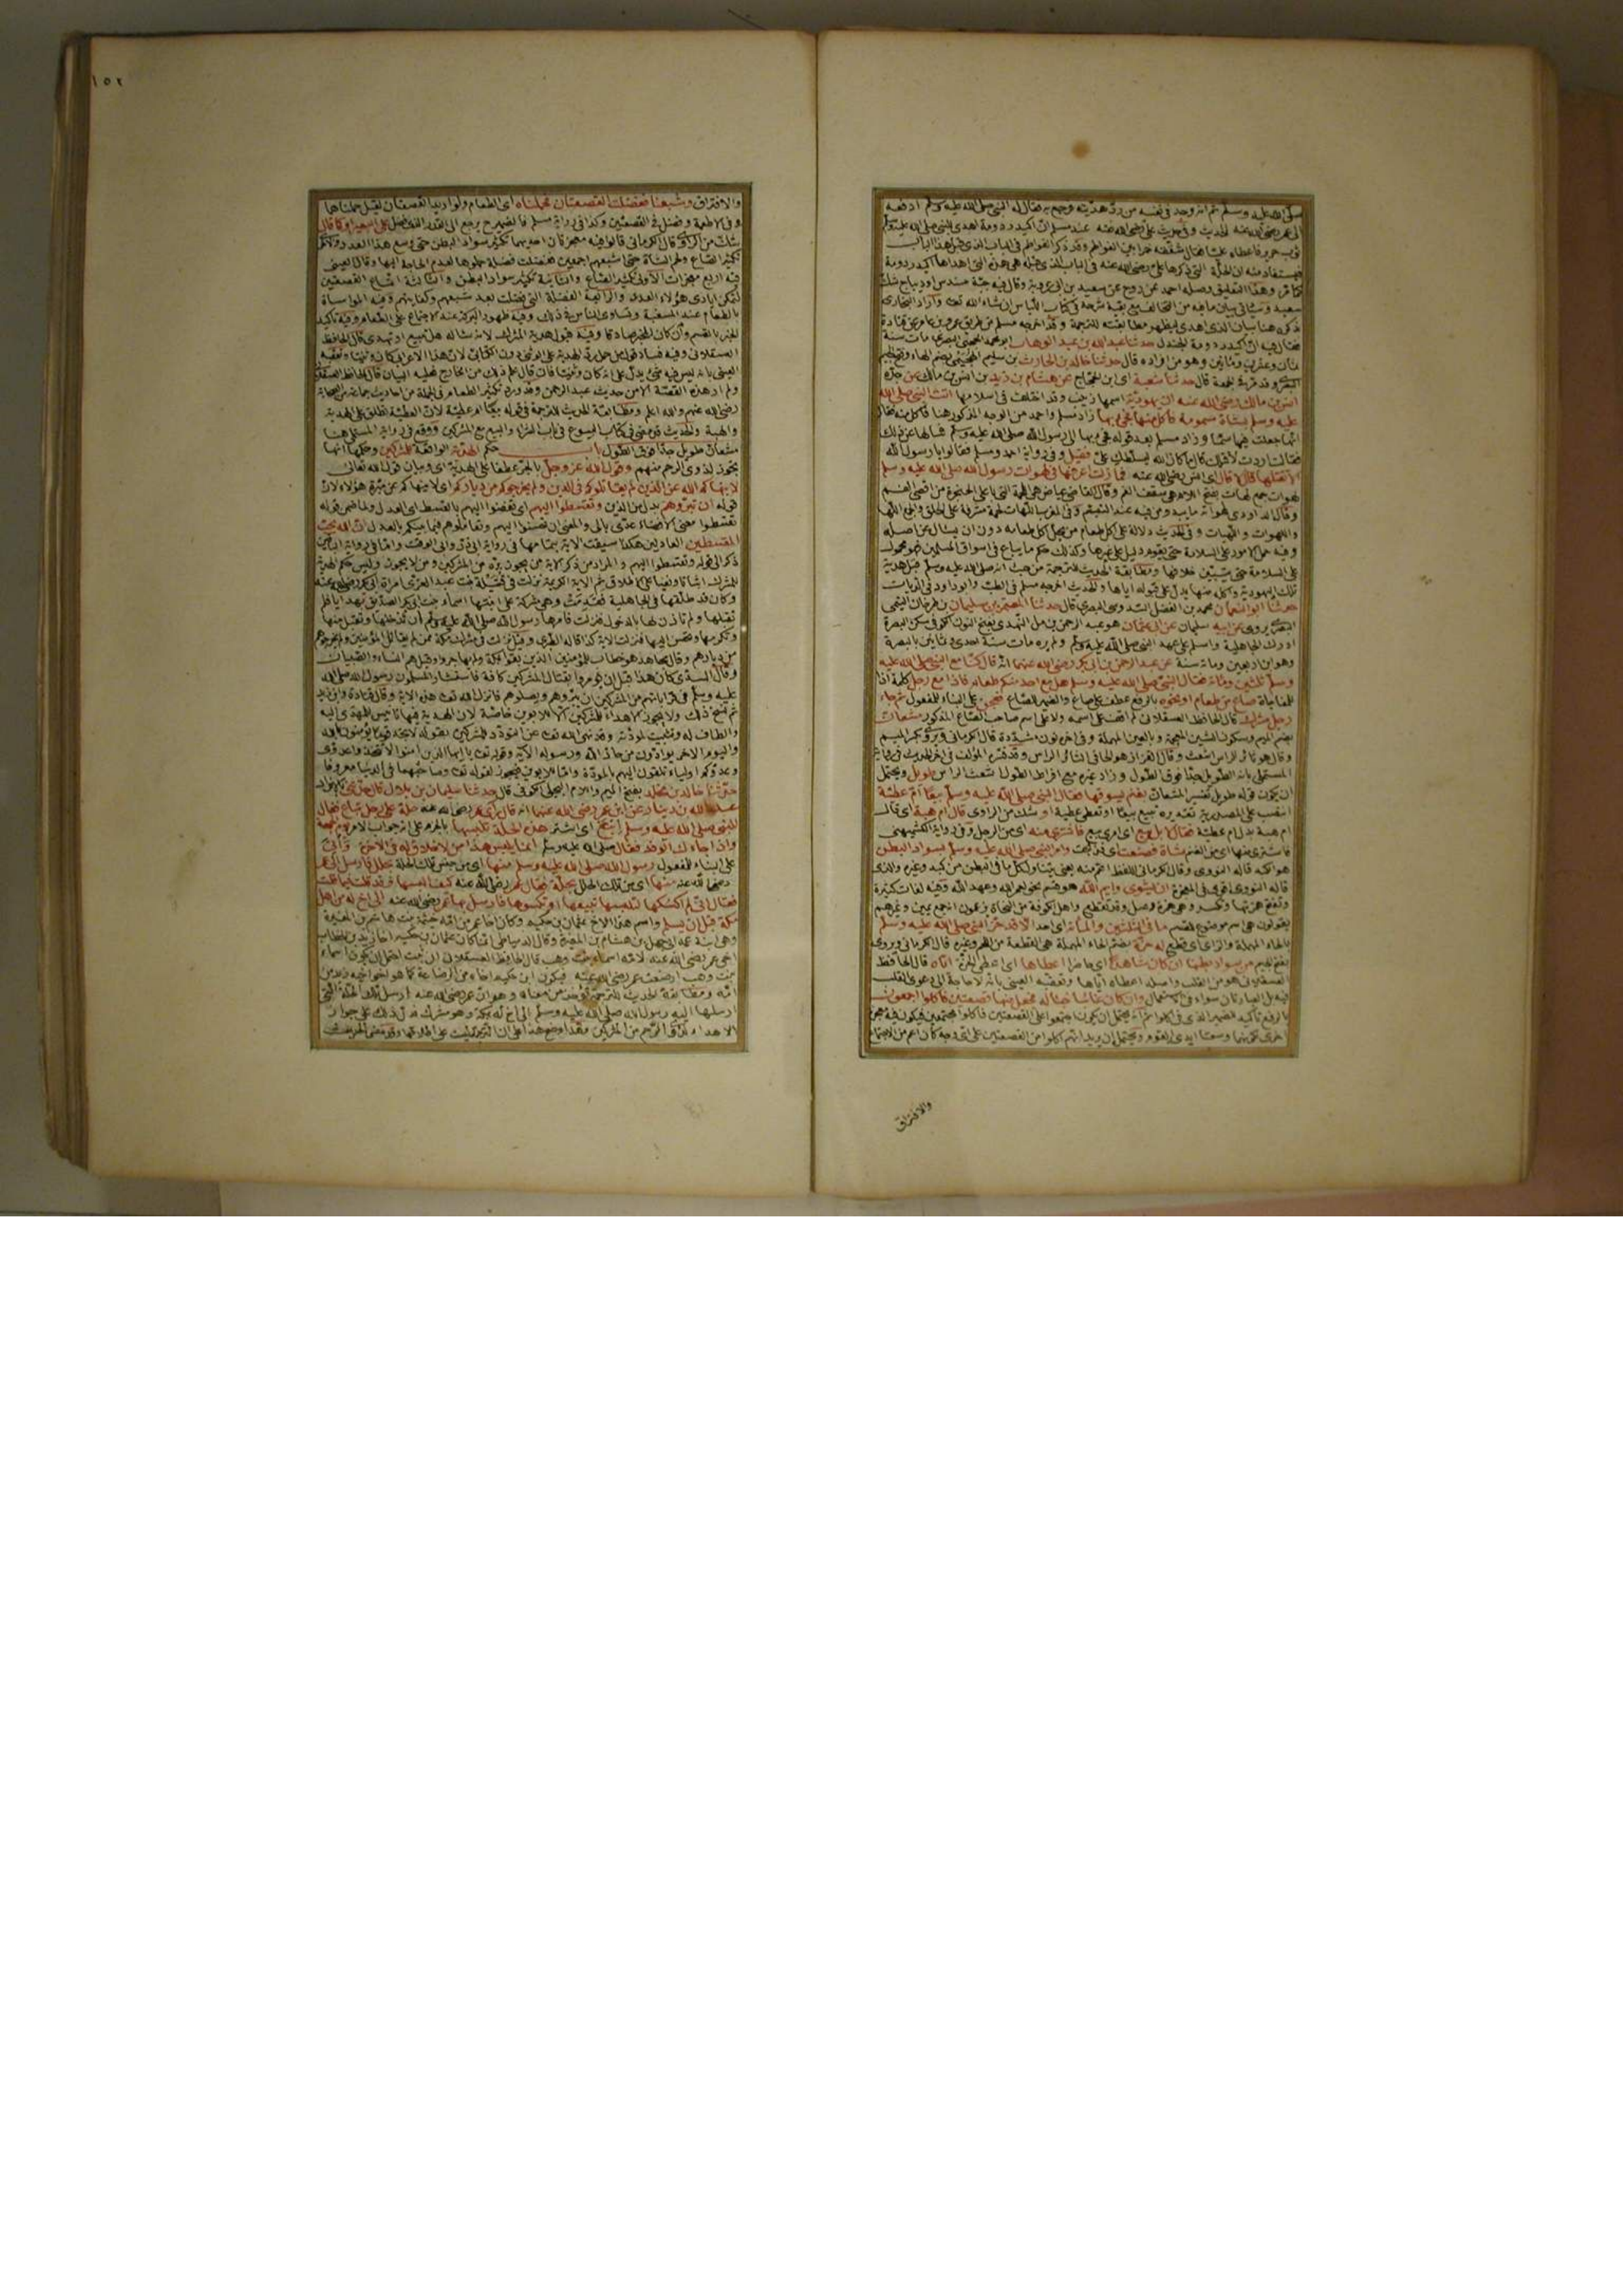 صلى الله عليه وسلم ثم انه وجد في نفسه من رد هديته وجمع به فقال له النبي صلى الله عليه وسلم ادفعه
الى عمر رضي الله عنه الحديث وفي حديث علي رضي الله عنه عند مسلم ان اكيدر دومة اهدى للنبي صلى الله عليه وسلم
ثوب حرير فاعطاه عليا فقال شققه خمرا بين الفواطم وقد ذكر الفواطم في الباب الذي قبل هذا الباب
فيستفاد منه ان الحلة التي ذكرها علي رضي الله عنه في الباب الذي قبله هي هذه التي اهداها اكيدر دومة
وهذا التعليق وصله احمد عن روح عن سعيد بن ابي عروبة وقال فيه جبة سندس او ديباج شك
سعيد وسيأتي بيان ما فيه من التخالف مع بقية شرحه في كتاب اللباس ان شاء الله تعالى واراد البخاري
ذكره هنا بيان الذي اهدى ليظهر مطابقته للترجمة وقد اخرجه مسلم من طريق عمرو بن عامر عن قتادة
فقال فيه ان اكيدر دومة الجندل حدثنا عبد الله بن عبد الوهاب ابو محمد الحجبي البصري مات سنة
ثمان وعشرين ومائتين وهو من افراده قال حدثنا خالد بن الحارث بن سليم الهجيمي بضم الهاء وفتح الجيم
البصري وقد مر في الجمعة قال حدثنا شعبة اي ابن الحجاج عن هشام بن زيد بن انس بن مالك عن جده
انس بن مالك رضي الله عنه ان يهودية اسمها زينب وقد اختلف في اسلامها اتت النبي صلى الله
عليه وسلم بشاة مسمومة فاكل منها فجئ بها زاد مسلم واحمد من الوجه المذكور هنا فاكل منه فقال
انها جعلت فيها سما وزاد مسلم بعد قوله فجئ بها الى رسول الله صلى الله عليه وسلم فسالها عن ذلك
فقالت اردت لاقتلك قال ما كان الله يسلطك علي فقيل وفي رواية احمد ومسلم فقالوا يا رسول الله
الا نقتلها قال لا قال اي انس رضي الله عنه فما زلت اعرفها في لهوات رسول الله صلى الله عليه وسلم
لهوات جمع لهاة بفتح اللام هي سقف الفم وقال القاضي عياض هي اللحمة التي باعلى الحنجرة من اقصى الفم
وقال الداودي لهواته ما يبدو من فيه عند التبسم وفي المغرب اللهات لحمة مشرفة على الحلق والجمع اللها
واللهوات واللهيات وفي الحديث دلالة على اكل طعام من يحل اكل طعامه دون ان يسال عن اصله
وفيه حمل الامور على السلامة حتى يقوم دليل على غيرها وكذلك حكم ما يباع في اسواق المسلمين هو محمول
على السلامة حتى يتبين خلافها ومطابقة الحديث للترجمة من حيث انه صلى الله عليه وسلم قبل هدية
تلك اليهودية واكله منها يدل على قبوله اياها والحديث اخرجه مسلم في الطب وابو داود في الديات
حدثنا ابو النعمان محمد بن الفضل السدوسي البصري قال حدثنا المعتمر بن سليمان بن طرخان التيمي
البصري يروي عن ابيه سليمان عن ابي عثمان هو عبد الرحمن بن مل النهدي بفتح النون الكوفي سكن البصرة
ادرك الجاهلية واسلم على عهد النبي صلى الله عليه وسلم ولم يره مات سنة احدى وثمانين بالبصرة
وهو ابن اربعين ومائة سنة عن عبد الرحمن بن ابي بكر رضي الله عنهما انه قال كنا مع النبي صلى الله عليه
وسلم ثلثين ومائة فقال النبي صلى الله عليه وسلم هل مع احد منكم طعام فاذا مع رجل كلمة اذا
للمفاجاة صاع من طعام او نحوه بالرفع عطف على صاع والضمير للصاع فعجن على البناء للمفعول ثم جاء
رجل مشرك قال الحافظ العسقلاني لم اقف على اسمه ولا على اسم صاحب الصاع المذكور مشعان
بضم الميم وسكون الشين المعجمة وبالعين المهملة وفي اخره نون مشددة قال الكرماني ويروى بكسر الميم
وقال هو ثائر الراس اشعث وقال القزاز هو الجافي الثائر الراس وقد فسره المؤلف في اخر الحديث في رواية
المستملي بانه الطويل جدا فوق الطول وزاد غيره مع افراط الطول شعث الراس طويل ويحتمل
ان يكون قوله طويل تفسير المشعان بغنم يسوقها فقال النبي صلى الله عليه وسلم بيعا ام عطية
انتصب على المصدرية تقديره تبيع بيعا او تعطي عطية او شك من الراوي قال ام هبة اي قال
ام هبة بدل ام عطية فقال لا بل بيع اي امري بيع فاشترى منه اي من الرجل وفي رواية الكشميهني
فاشترى منها اي من الغنم شاة فصنعت اي ذبحت وامر النبي صلى الله عليه وسلم بسواد البطن
هو الكبد قاله النووي وقال الكرماني اللفظ اعم منه يعني يتناول كل ما في البطن من كبد وغيره والذي
قاله النووي اقوى في المعجزة ان يشوى وايم الله هو قسم نحو لعمر الله وعهد الله وفيه لغات كثيرة
وتفتح همزتها وتكسر وهي همزة وصل وقد تقطع واهل الكوفة من النحاة يزعمون انه جمع يمين وغيرهم
يقولون هي اسم موضوع للقسم ما في الثلثين والمائة اي احد الا قد حز النبي صلى الله عليه وسلم
بالحاء المهملة والزاي اي قطع له حزة بضم الحاء المهملة هي القطعة من اللحم وغيره قال الكرماني ويروى
بفتح الجيم من سواد بطنها ان كان شاهدا اي حاضرا اعطاها اي اعطى الحزة اياه قال الحافظ
العسقلاني هو من القلب واصله اعطاه اياها وتعقبه العيني بانه لا حاجة الى دعوى القلب
فيه بل العبارتان سواء في الاستعمال وان كان غائبا خبأ له فجعل منها قصعتين فاكلوا اجمعون
بالرفع تأكيد للضمير الذي في اكلوا ثم انه يحتمل ان يكونوا اجتمعوا على القصعتين فاكلوا مجتمعين فيكون فيه معجزة
اخرى لكونهما وسعتا ايدي القوم ويحتمل ان يريد انهم اكلوا من القصعتين على اي وجه كان اعم من الاجتماع
والافتراق
١٥٢
والافتراق وشبعنا ففضلت القصعتان فحملناه اي الطعام ولو اريد القصعتان لقيل حملناهما
وفي الاطعمة وفضل في القصعتين وكذا في رواية مسلم فالضمير ح يرجع الى القدر الذي فضل على البعير او كما قال
شك من الراوي قال الكرماني قالوا فيه معجزتان احديهما تكثير سواد البطن حتى وسع هذا العدد والاخرى
تكثير الصاع ولحم الشاة حتى اشبعهم اجمعين ففضلت فضلة حملوها لعدم الحاجة اليها وقال العيني
فيه اربع معجزات الاولى تكثير الصاع والثانية تكثير سواد البطن والثالثة اتساع القصعتين
لتمكن ايادي هؤلاء العدد والرابعة الفضلة التي فضلت بعد شبعهم وكفايتهم وفيه المواساة
بالطعام عند المسغبة وتساوي الناس في ذلك وفيه ظهور البركة عند الاجتماع على الطعام وفيه تأكيد
الخبر بالقسم وان كان المخبر صادقا وفيه قبول هدية المشرك لانه سأله هل تبيع او تهدي قال الحافظ
العسقلاني وفيه فساد قول من حمل رد الهدية على الوثني دون الكتابي لان هذا الاعرابي كان وثنيا وتعقبه
العيني بانه ليس فيه شئ يدل على انه كان وثنيا فان قال علم ذلك من الخارج فعليه البيان قال الحافظ العسقلاني
ولم ار هذه القصة الا من حديث عبد الرحمن وقد ورد تكثير الطعام في الجملة من احاديث جماعة من الصحابة
رضي الله عنهم والله اعلم ومطابقة الحديث للترجمة في قوله بيعا ام عطية لان العطية تطلق على الهدية
والهبة والحديث قد مضى في كتاب البيوع في باب الشراء والبيع مع المشركين ووقع في رواية المستملي هنا
مشعان طويل جدا فوق الطول باب حكم الهدية الواقعة للمشركين وحكمها انها
تجوز لذوي الرحم منهم وقول الله عز وجل بالجر عطفا على الهدية اي وبيان قول الله تعالى
لا ينهاكم الله عن الذين لم يقاتلوكم في الدين ولم يخرجوكم من دياركم اي لا ينهاكم عن مبرة هؤلاء لان
قوله ان تبروهم بدل من الذين وتقسطوا اليهم اي تفضوا اليهم بالقسط اي العدل ولما ضمن قوله
تقسطوا معنى الافضاء عدي بالى والمعنى ان تحسنوا اليهم وتعاملوهم فيما بينكم بالعدل ان الله يحب
المقسطين العادلين هكذا سيقت الآية بتمامها في رواية ابي ذر وابي الوقت واما في رواية الباقين
ذكر الى قوله وتقسطوا اليهم والمراد من ذكر الآية بيان من يجوز بره من المشركين ومن لا يجوز وليس حكم الهدية
للمشرك اثباتا ونفيا على الاطلاق ثم الاية الكريمة نزلت في قتيلة بنت عبد العزى امرأة ابي بكر رضي الله عنه
وكان قد طلقها في الجاهلية فقدمت وهي مشركة على ابنتها اسماء بنت ابي بكر الصديق بهدايا فلم
تقبلها ولم تأذن لها بالدخول فنزلت فامرها رسول الله صلى الله عليه وسلم ان تدخلها وتقبل منها
وتكرمها وتحسن اليها فنزلت الآية كذا قاله الطبري وقيل نزلت في مشركي مكة ممن لم يقاتل المؤمنين ولم يخرجوهم
من ديارهم وقال مجاهد هو خطاب للمؤمنين الذين بقوا بمكة ولم يهاجروا وقيل هم النساء والصبيان
وقال السدي كان هذا قبل ان يؤمروا بقتال المشركين كافة فاستشار المسلمون رسول الله صلى الله
عليه وسلم في قراباتهم من المشركين ان يبروهم ويصلوهم فانزل الله تعالى هذه الآية وقال قتادة وابن زيد
ثم نسخ ذلك ولا يجوز الاهداء للمشركين الا للابوين خاصة لان الهدية فيها تأنيس للمهدى اليه
والطاف له وتثبيت لمودته وقد نهى الله تعالى عن التودد للمشركين بقوله لا تجد قوما يؤمنون بالله
واليوم الآخر يوادون من حاد الله ورسوله الآية وقوله تعالى يا ايها الذين امنوا لا تتخذوا عدوي
وعدوكم اولياء تلقون اليهم بالمودة واما الابوين فيجوز لقوله تعالى وصاحبهما في الدنيا معروفا
حدثنا خالد بن مخلد بفتح الميم واللام البجلي الكوفي قال حدثنا سليمان بن بلال قال حدثني بالافراد
عبد الله بن دينار عن ابن عمر رضي الله عنهما انه قال راى عمر رضي الله عنه حلة على رجل تباع فقال
للنبي صلى الله عليه وسلم ابتع اي اشتر هذه الحلة تلبسها بالجزم على انه جواب الامر يوم الجمعة
واذا جاءك الوفد فقال صلى الله عليه وسلم انما يلبس هذا من لا خلاق له في الآخرة فأتي
على البناء للمفعول رسول الله صلى الله عليه وسلم منها اي من جنس تلك الحلة بحلل فارسل الى عمر
رضي الله عنه منها اي من تلك الحلل بحلة فقال عمر رضي الله عنه كيف البسها وقد قلت فيها ما قلت
فقال اني لم اكسكها لتلبسها تبيعها او تكسوها فارسل بها عمر رضي الله عنه الى اخ له من اهل
مكة قبل ان يسلم واسم هذا الاخ عثمان بن حكيم وكان اخا عمر من امه خيثمة بنت هاشم بن المغيرة
وهي ابنة عم ابي جهل بن هشام بن المغيرة وقال الدمياطي انما كان عثمان بن حكيم اخا زيد بن الخطاب
اخي عمر رضي الله عنه لامه اسماء بنت وهب قال الحافظ العسقلاني ان ثبت احتمل ان يكون اسماء
بنت وهب ارضعت عمر رضي الله عنه فيكون ابن حكيم اخاه من الرضاعة كما هو اخو اخيه زيد من
امه ومطابقة الحديث للترجمة تؤخذ من معناه وهو ان عمر رضي الله عنه ارسل تلك الحلة التي
ارسلها اليه رسول الله صلى الله عليه وسلم الى اخ له بمكة وهو مشرك فدل ذلك على جواز
الاهداء لذوي الرحم من المشركين